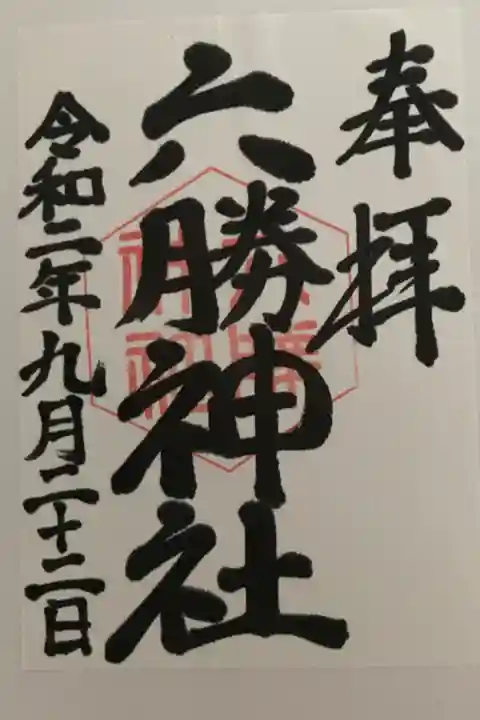 奉拝
六勝神社
六勝
神社
令和二年九月二十二日